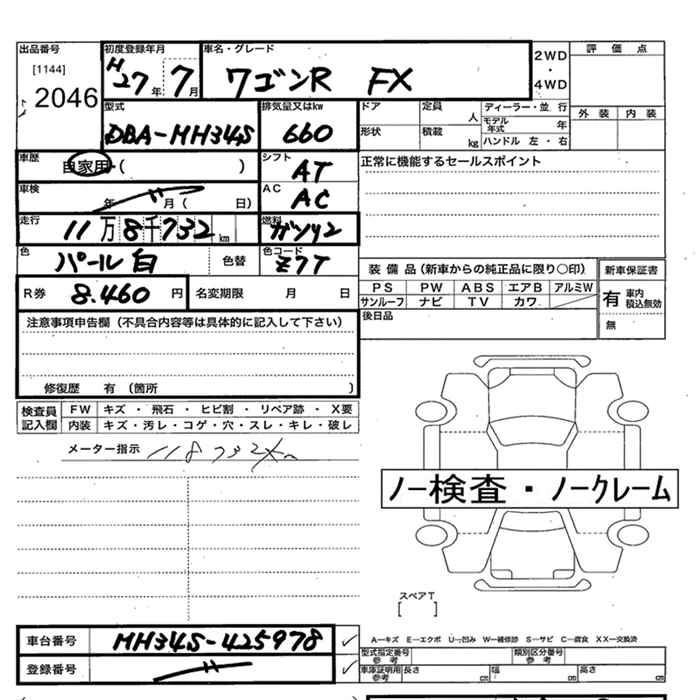 出品番号 初度登録年月 車名・グレード 2WD ・ 4WD 評価点
[1144] 2046 H27年 7月 ワゴンR FX 外装 内装
型式 排気量又はkw ドア 定員 人 ディーラー・並行
DBA-MH34S 660 形状 積載 kg モデル年式 年 ハンドル 左・右
車歴 自家用 ( ) シフト AT 正常に機能するセールスポイント
車検 年 〃 月 ( 日) AC AC
走行 11万8千732km 燃料 ガソリン
色 パール白 色替 色コード Z7T
装備品(新車からの純正品に限り○印) 新車保証書
R券 8.460円 名変期限 月 日 PS PW ABS エアB アルミW 有 車内 積込無効
サンルーフ ナビ TV カワ 無
注意事項申告欄(不具合内容等は具体的に記入して下さい) 後日品
修復歴 有 (箇所 )
検査員記入欄 FW キズ・飛石・ヒビ割・リペア跡・X要
内装 キズ・汚レ・コゲ・穴・スレ・キレ・破レ
メーター指示 118732km
ノー検査・ノークレーム
スペアT
[ ]
車台番号 MH34S-425978 ✓ A―キズ E―エクボ U―凹み W―補修跡 S―サビ C―腐食 XX―交換済
型式指定番号 参考 類別区分番号 参考
登録番号 〃 ✓ 車庫証明用 参考 長さ cm 幅 cm 高さ cm